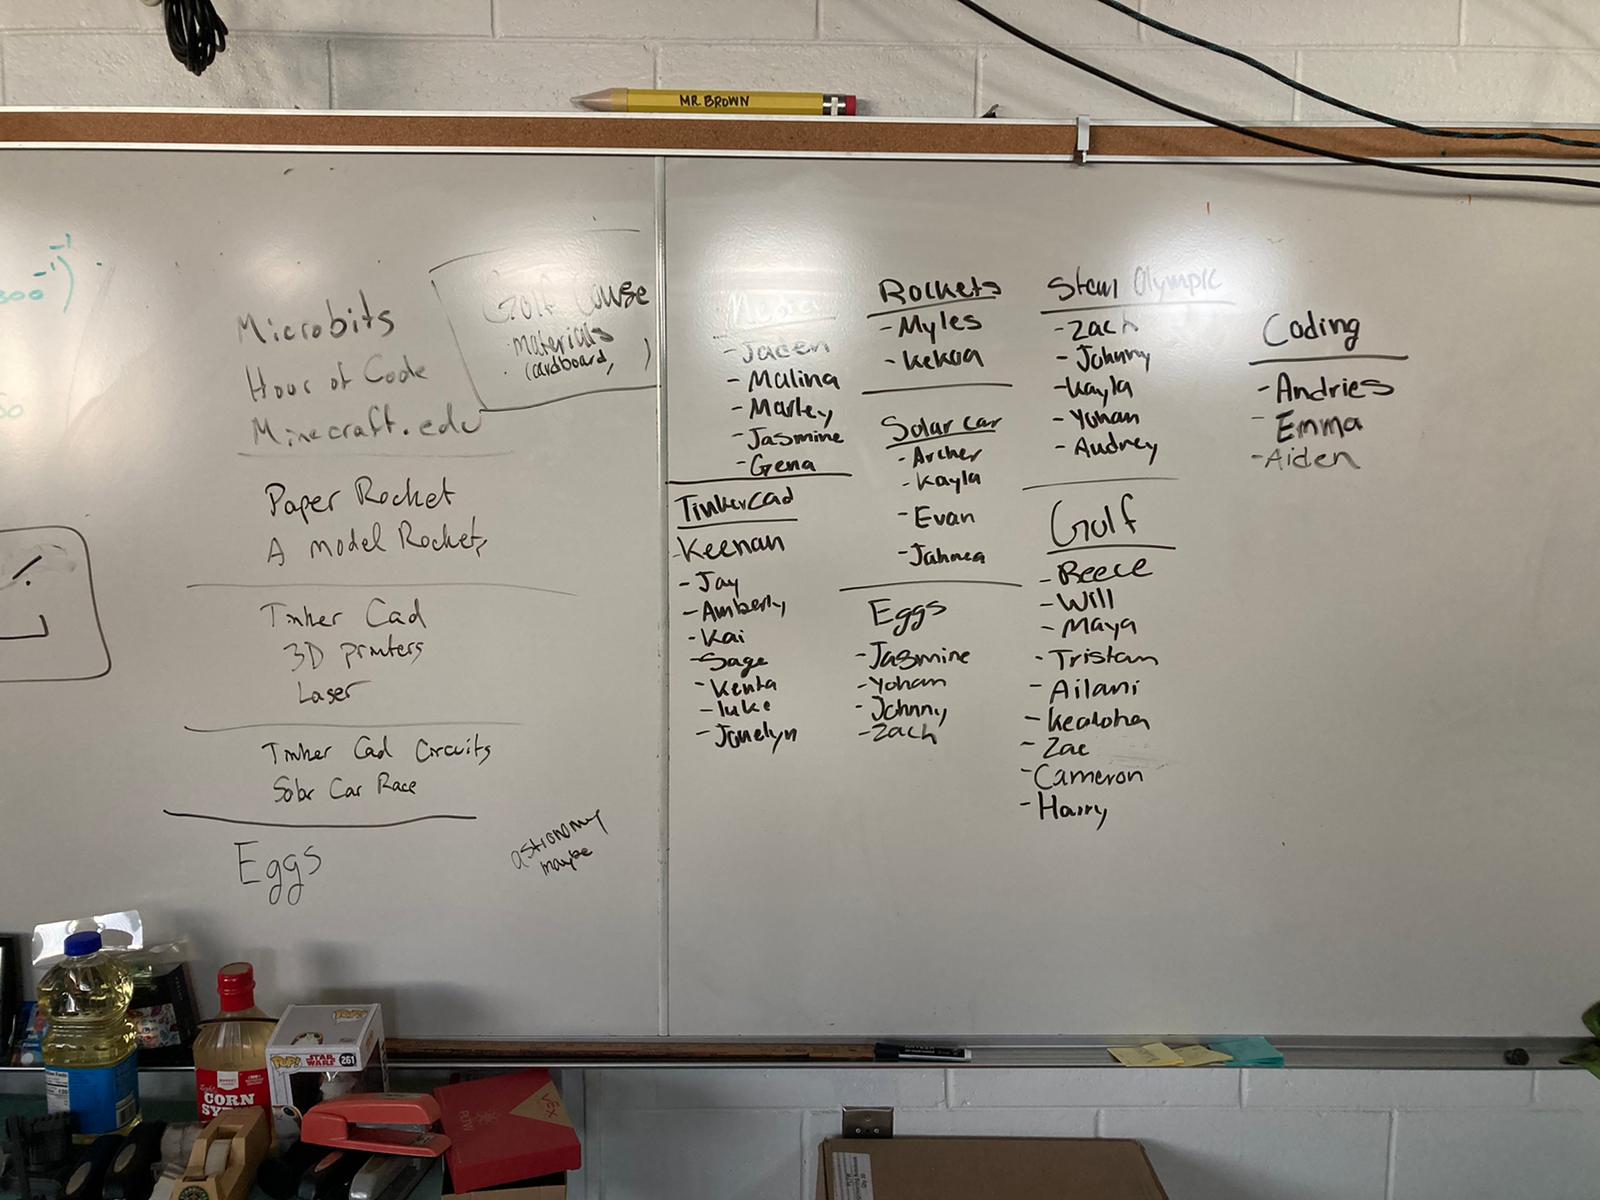 MR. BROWN
Microbits
Hour of Code
Minecraft.edu
Golf Couse
materials
(cardboard, )
Paper Rocket
A model Rockets
Tinker Cad
3D printers
Laser
Tinker Cad Circuits
Solar Car Race
Eggs
astronomy
maybe
Media
- Jaden
- Malina
- Marley
- Jasmine
- Gena
TinkerCad
- Keenan
- Jay
- Amberly
- Kai
- Sage
- Kenta
- luke
- Jonelyn
Rockets
- Myles
- Kekoa
Solar car
- Archer
- Kayla
- Evan
- Jahnea
Eggs
- Jasmine
- Yohan
- Johnny
- Zach
Stem Olympic
- Zach
- Johnny
- Kayla
- Yohan
- Audrey
Golf
- Reece
- Will
- Maya
- Tristan
- Ailani
- Kealoha
- Zac
- Cameron
- Harry
Coding
- Andries
- Emma
- Aiden
POP!
STAR WARS
261
CORN
VEX